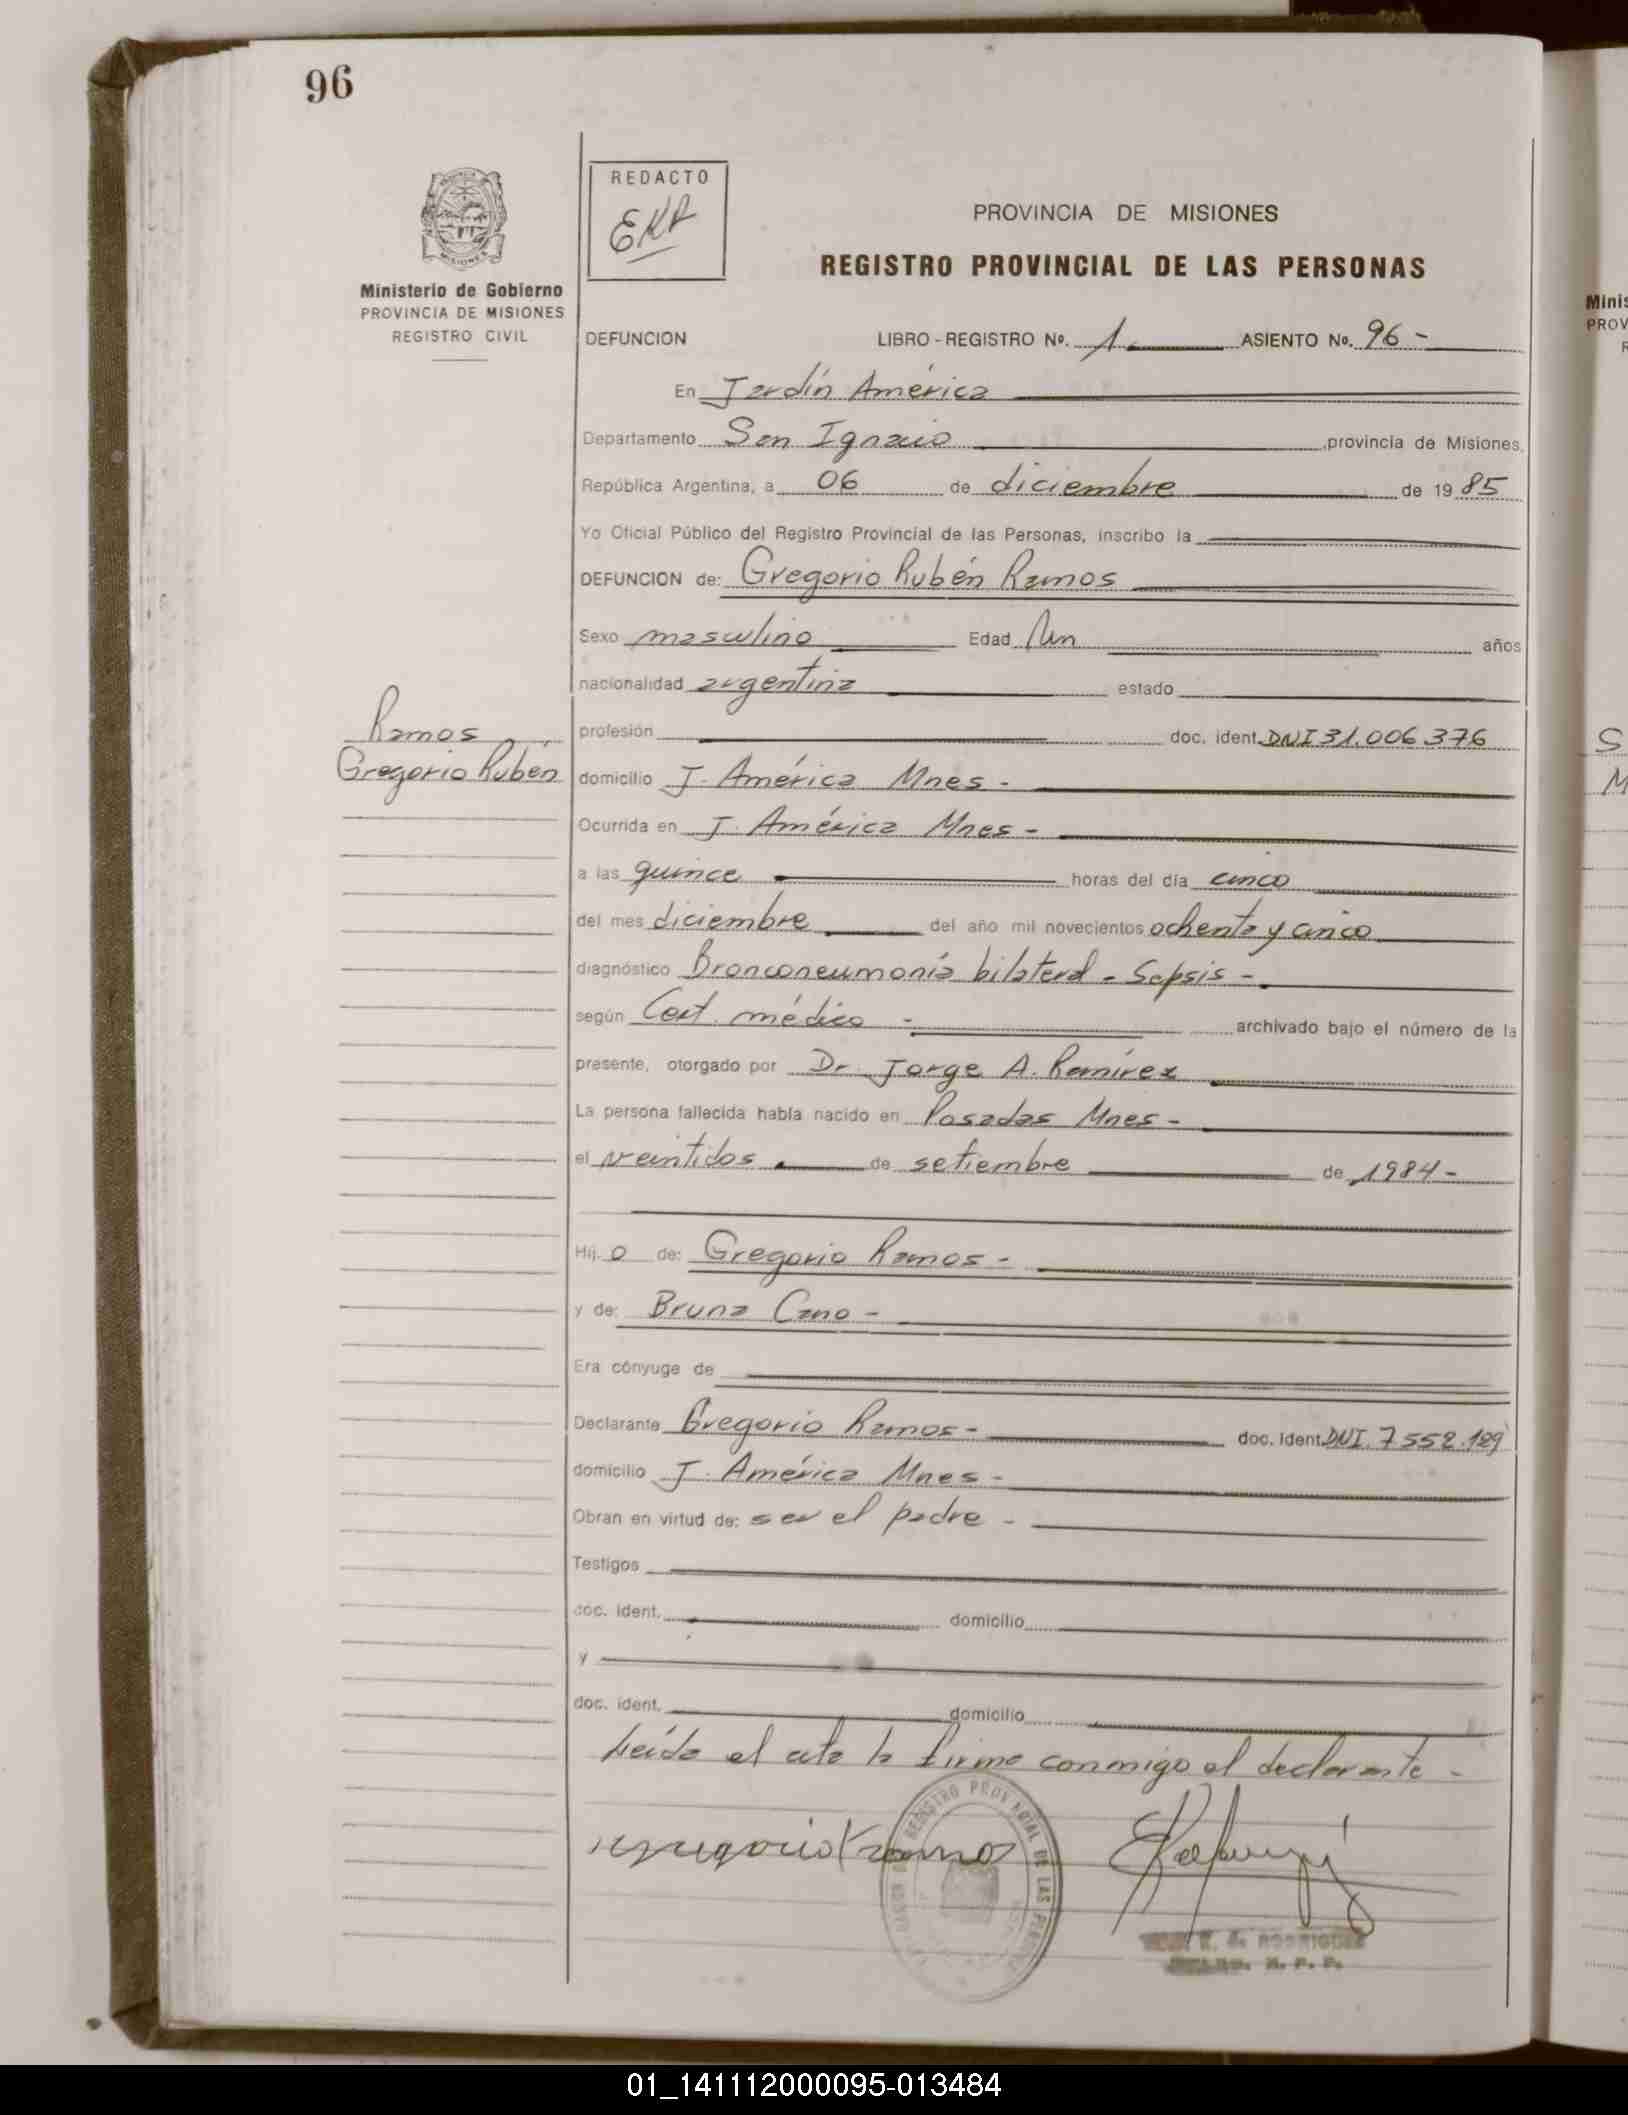 96
REDACTO
EKR
PROVINCIA DE MISIONES
REGISTRO PROVINCIAL DE LAS PERSONAS
MISIONES
Ministerio de Gobierno
PROVINCIA DE MISIONES
REGISTRO CIVIL
DEFUNCION LIBRO - REGISTRO No. 1. ASIENTO No. 96 -
En Jardín América
Departamento San Ignacio, provincia de Misiones,
República Argentina, a 06 de diciembre de 19 85
Yo Oficial Público del Registro Provincial de las Personas, inscribo la
DEFUNCION de: Gregorio Rubén Ramos
Sexo masculino Edad Un años
nacionalidad argentina estado
Ramos
Gregorio Rubén
profesión doc. ident. DNI 31.006.376
domicilio J. América Mnes -
Ocurrida en J. América Mnes -
a las quince horas del día cinco
del mes diciembre del año mil novecientos ochenta y cinco
diagnóstico Bronconeumonía bilateral - Sepsis -
según Cert. médico - archivado bajo el número de la
presente, otorgado por Dr. Jorge A. Ramírez
La persona fallecida había nacido en Posadas Mnes -
el veintidos de setiembre de 1984 -
Hij o de: Gregorio Ramos -
y de: Bruna Cano -
Era cónyuge de
Declarante Gregorio Ramos - doc. ident. DNI. 7552.129
domicilio J. América Mnes -
Obran en virtud de: ser el padre -
Testigos
doc. ident. domicilio
y
doc. ident. domicilio
Leída el acta la firma conmigo el declarante -
gregorio Ramos
REGISTRO PROVINCIAL DE LAS PERSONAS
RODRIGUEZ
Minis
PROV
R
S
M
01_141112000095-013484